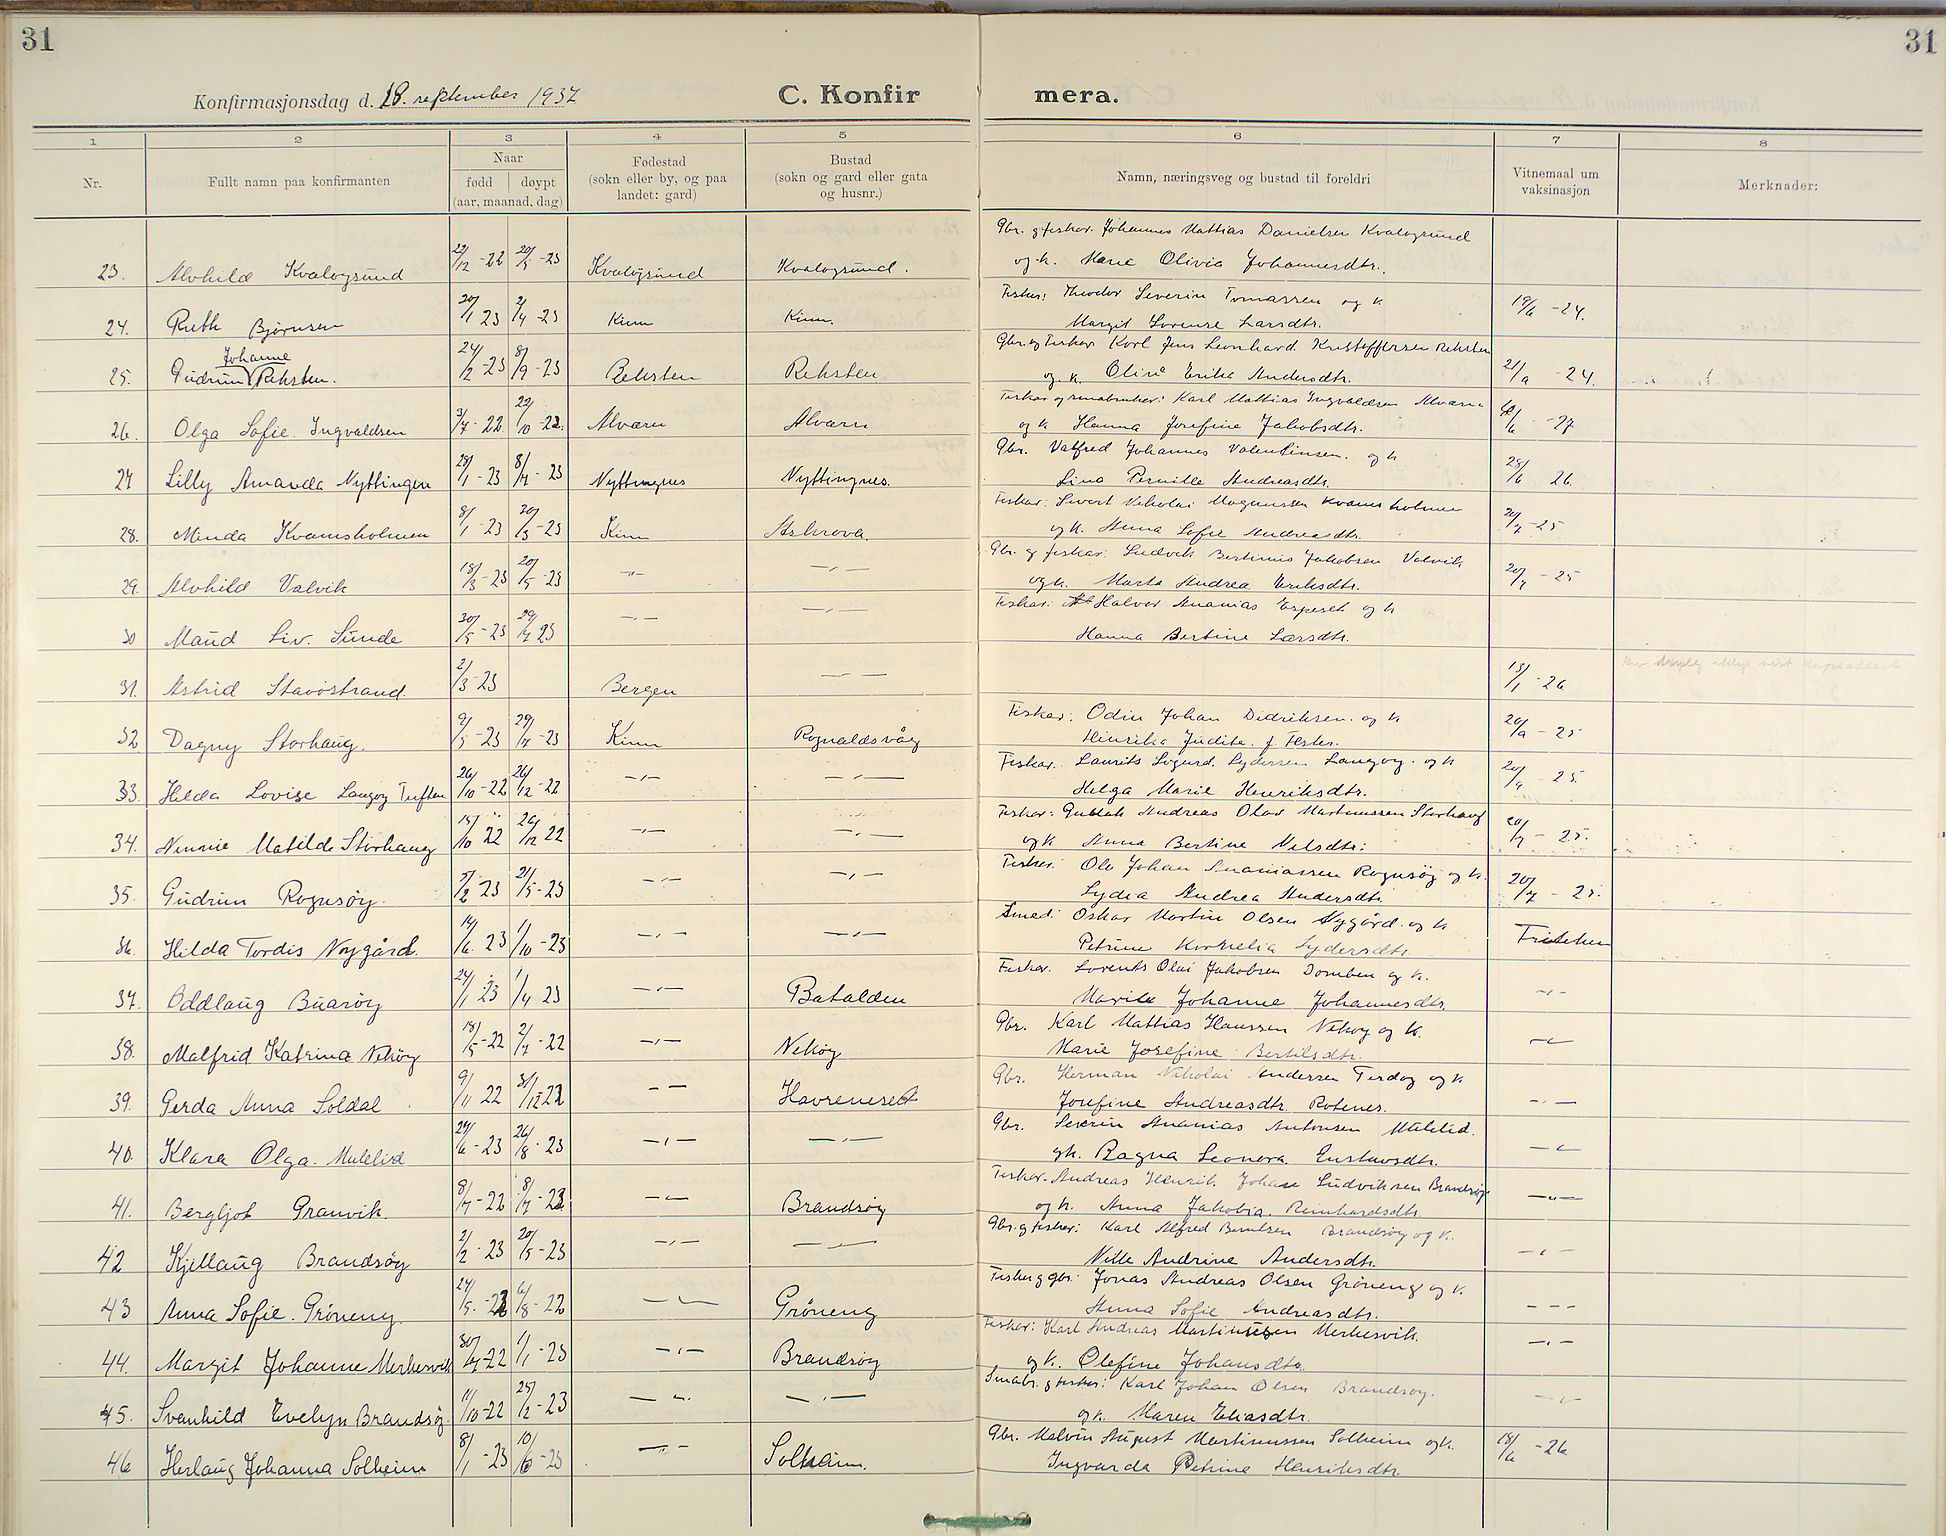 31
31
Konfirmasjonsdag d. 18. september 1937
C. Konfirmera.
1 2 3 4 5 6 7 8
Nr.
Fullt namn paa konfirmanten
Naar
fødd døypt
(aar, maanad, dag)
Fødestad
(sokn eller by, og paa
landet: gard)
Bustad
(sokn og gard eller gata
og husnr.)
Namn, næringsveg og bustad til foreldri
Vitnemaal um
vaksinasjon
Merknader:
23. Alvhild Kvalvgsund 29/12 -22 20/5 -23 Kvalvgsund Kvalvgsund. Gbr. g fiskar. Johannes Mattias Danielsen Kvalvgsund
og k. Marie Olivia Johannesdtr.
24. Ruth Bjørnsen 20/1 23 2/4 -23 Kinn Kinn. Fiskar: Theodor Severin Tomassen og k
Margit Lorense Larsdtr. 19/6 -24.
25. Gudrun Johanne Reksten. 24/2 -23 8/9 -23 Reksten Reksten Gbr. og Fiskar Karl Jens Leonhard Kristoffersen Reksten
og k. Oline Erika Andersdtr. 21/9 -24.
26. Olga Sofie. Ingvaldsen 3/7 -22 22/10 -22. Alværa Alværa Fiskar og smabruker: Karl Mattias Ingvaldsen Alværa
og k Hanna Josefine Jakobsdtr. -27
27 Lilly Amanda Nyttingen 28/1 -23 8/7 -23 Nyttingnes Nyttingnes. Gbr. Valfred Johannes Valentinsen. og k
Lina Pernille Andreasdtr. 28/6 26.
28. Minda Kvamsholmen 8/1 -23 20/5 -23 Kinn Askrova. Fiskar: Sivert Nikolai Magnussen Kvamsholmen
og k. Anna Sofie Andreasdtr. 20/7 -25
29. Alvhild Valvik 18/3 -23 20/5 -23 -"- -"- Gbr. g fiskar: Ludvik Bertinus Jakobsen Valvik
og k. Marta Andrea Eriksdtr. 20/7 -25
30 Maud Liv. Sunde 30/5 -23 29/7 23 -"- -"- Fiskar: Halvor Ananias Espeset og k
Hanna Bertine Larsdtr.
31. Astrid Stavøstrand 2/3 -23 Bergen -"- 15/1 -26
32 Dagny Storhaug. 9/5 -23 29/7 -23 Kinn Rognaldsvåg Fiskar: Odin Johan Didriksen. og k
Hinrika Judite. f. 20/9 -25
33. Hilda Lovise Langøy Tuften 26/10 -22 26/12 -22 -"- -"- Fiskar. Laurits Sigurd. Sydersen Langøy. og k
Helga Marie Henriksdtr. 20/9 -25.
34. Nennie Matilde Storhaug 15/10 22 26/12 22 -"- -"- Fiskar: Gustak Andreas Olav Martinussen Storhaug
og k Anna Bertine Nilsdtr: 20/7 - 25.
35. Gudrun Rognsøy. 5/2 23 21/5 -23 -"- -"- Fiskar: Ole Johan Ananiassen Rognsøy og k.
Lydia Andrea Andersdtr. 20/7 - 25.
36. Hilda Tordis Nygård. 14/6 23 1/10 -23 -"- -"- Smed: Oskar Martin Olsen Nygård. og k
Petrine Kornelia Sydersdtr.
37. Oddlaug Buarøy 24/1 23 1/4 23 -"- Batalden Fiskar. Lorents Olai Jakobsen Domben og k.
Marite Johanne Johannesdtr. -"-
38. Malfrid Katrina Nekøy 18/5 -22 2/7 -22 -"- Nekøy Gbr. Karl Mattias Hanssen Nekøy og k.
Marie Josefine Bertilsdtr. -"-
39. Gerda Anna Soldal 9/11 22 31/12 22 -"- Havreneset Gbr. Herman Nikolai Andersen Terdøy og k
Josefine Andreasdtr. Rotenes. -"-
40. Klara Olga. Muklid 24/6 -23 26/8 -23 -"- -"- Gbr. Severin Ananias Antonsen Muklid.
gk. Ragna Leonora. Gustavsdtr. -"-
41. Bergljot Granvik. 8/7 -22 8/7 -23 -"- Brandsøy Fiskar. Andreas Henrik Johan Ludviksen Brandsøy
og k. Anna Jakobia. Reinhardsdtr. -"-
42 Kjellaug Brandsøy 2/2 -23 20/5 -23 -"- -"- Gbr. g fiskar: Karl Alfred Berntsen Brandsøy og k.
Nille Andrine Andersdtr. -"-
43 Anna Sofie. Grøneng. 24/5 -22 6/8 -22 -"- Grøneng Fiskar g gbr. Jonas Andreas Olsen Grøneng og k.
Anna Sofie Andreasdtr. ---
44. Margit Johanne Merkesvik 30/ -22 1/1 -23 -"- Brandsøy Fiskar: Karl Andreas Martinussen Merkesvik.
og k. Olefine Johansdtr. -"-
45. Svanhild Evelyn Brandsøy. 11/10 -22 25/2 -23 -"- -"- Smabr. g fiskar: Karl Johan Olsen Brandsøy.
og k. Maren Eliasdtr. -"-
46 Herlaug Johanna Solheim 8/1 -23 10/6 -23 -"- Solheim. Gbr. Malvin August Martinussen Solheim og k.
Ingvarda Petrine Henriksdtr. 18/6 -26